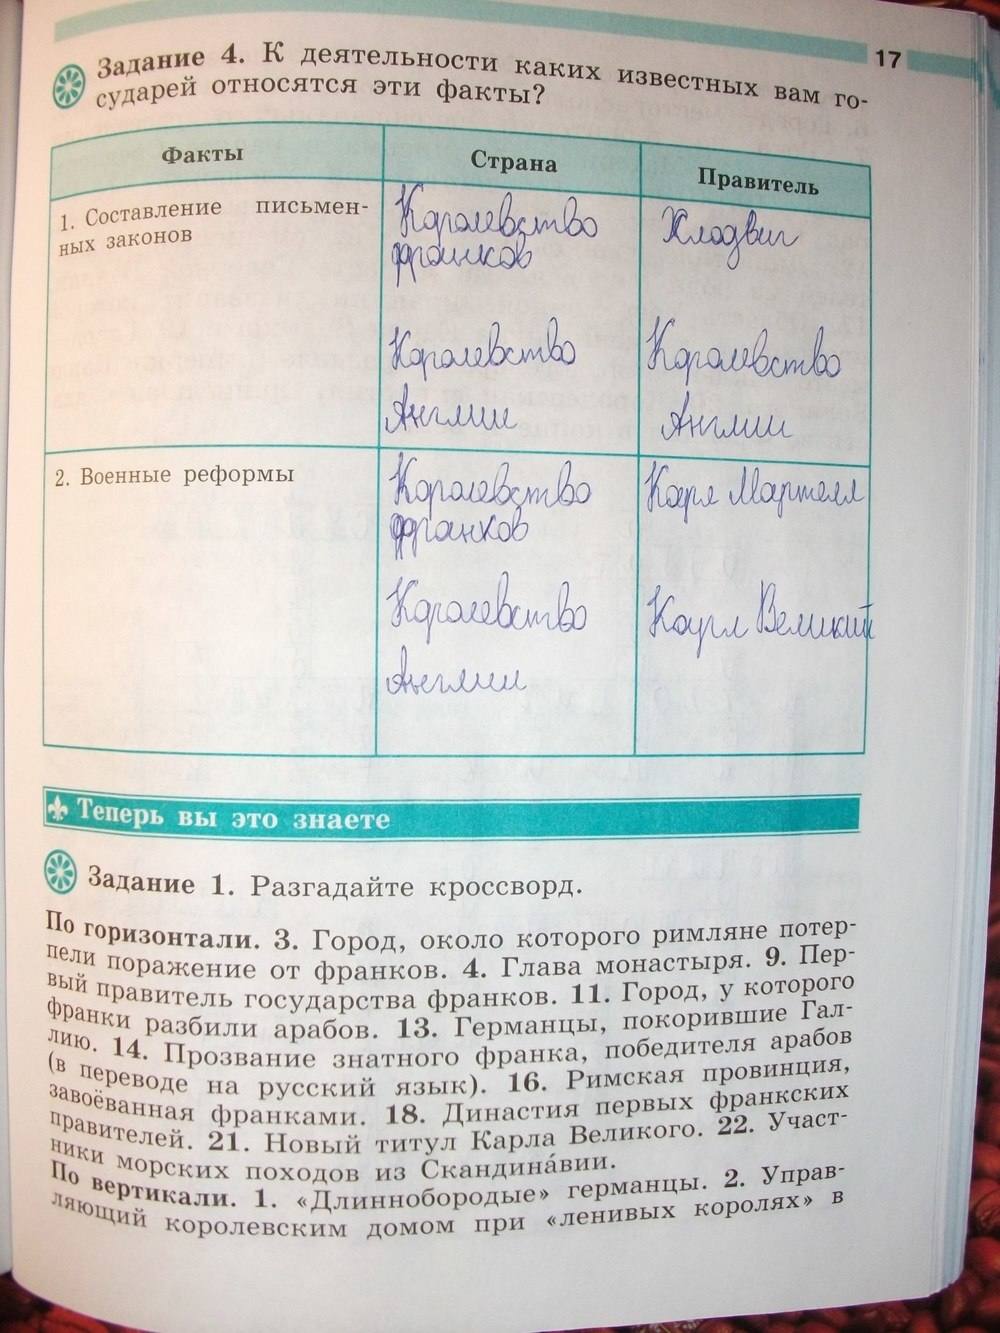 17
Задание 4. К деятельности каких известных вам го-
сударей относятся эти факты?
Факты
Страна
Правитель
1. Составление письмен-
ных законов
Королевство
франков
Хлодвиг
Королевство
Англии
Королевство
Англии
2. Военные реформы
Королевство
франков
Карл Мартелл
Королевство
Англии
Карл Великий
Теперь вы это знаете
Задание 1. Разгадайте кроссворд.
По горизонтали. 3. Город, около которого римляне потер-
пели поражение от франков. 4. Глава монастыря. 9. Пер-
вый правитель государства франков. 11. Город, у которого
франки разбили арабов. 13. Германцы, покорившие Гал-
лию. 14. Прозвание знатного франка, победителя арабов
(в переводе на русский язык). 16. Римская провинция,
завоёванная франками. 18. Династия первых франкских
правителей. 21. Новый титул Карла Великого. 22. Участ-
ники морских походов из Скандина́вии.
По вертикали. 1. «Длиннобородые» германцы. 2. Управ-
ляющий королевским домом при «ленивых королях» в